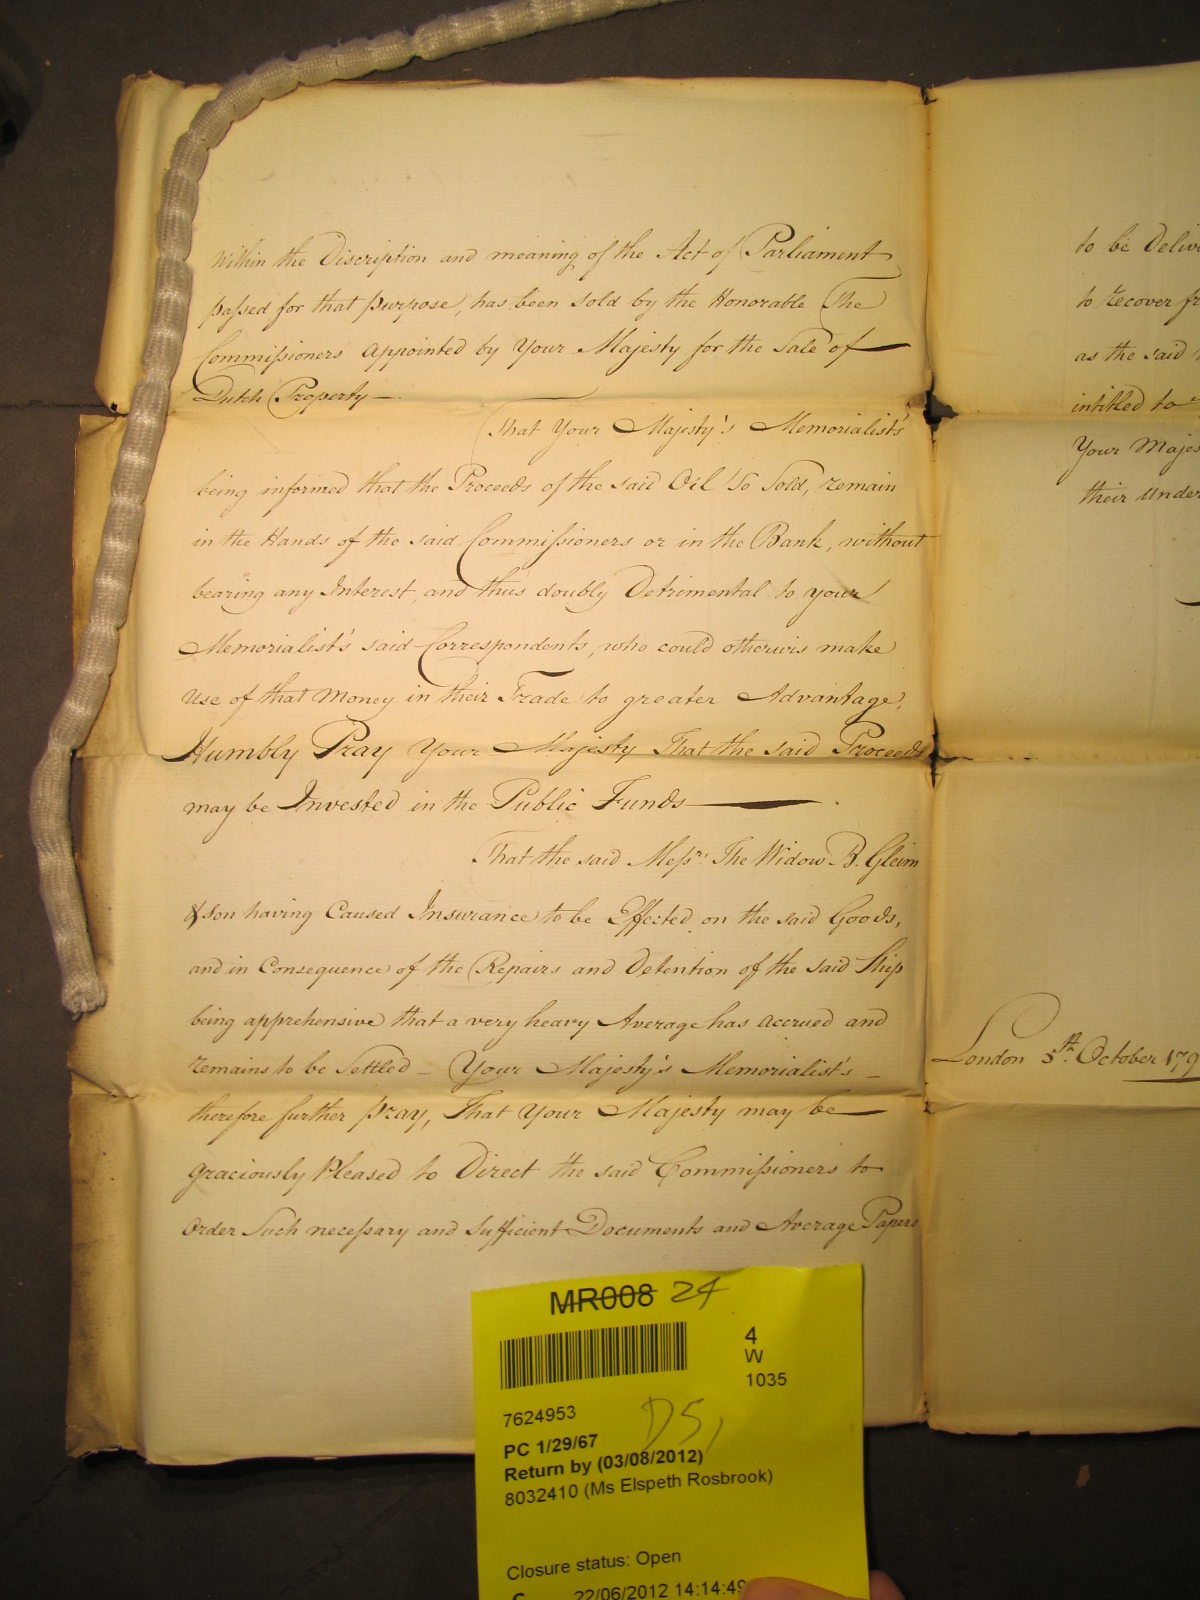 within the Discription and meaning of the Act of Parliament
passed for that purpose, has been sold by the Honorable The
Commissioners appointed by Your Majesty for the Sale of
Dutch Property —.
That Your Majesty's Memorialist's
being informed that the Proceeds of the said Oil So Sold, remain
in the Hands of the said Commissioners or in the Bank, without
bearing any Interest and thus doubly Detrimental to your
Memorialist's said Correspondents, who could otherwis make
use of that Money in their Trade to greater Advantage,
Humbly Pray Your Majesty That the said Proceeds
may be Invested in the Public Funds —.
That the said Messrs. The Widow B. Gleim
& Son having Caused Insurance to be Effected on the said Goods,
and in Consequence of the Repairs and Detention of the said Ship
being apprehensive that a very heavy Average has accrued and
remains to be Settled — Your Majesty's Memorialist's —
therefore further pray, That Your Majesty may be —
graciously Pleased to Direct the said Commissioners to
order Such necessary and Sufficient Documents and Average Papers
to be Deliv
to recover fr
as the said
intitled to
Your Majes
their under
London 5th. October 179
MR008 24
4
W
1035
7624953
DS,
PC 1/29/67
Return by (03/08/2012)
8032410 (Ms Elspeth Rosbrook)
Closure status: Open
22/06/2012 14:14:49